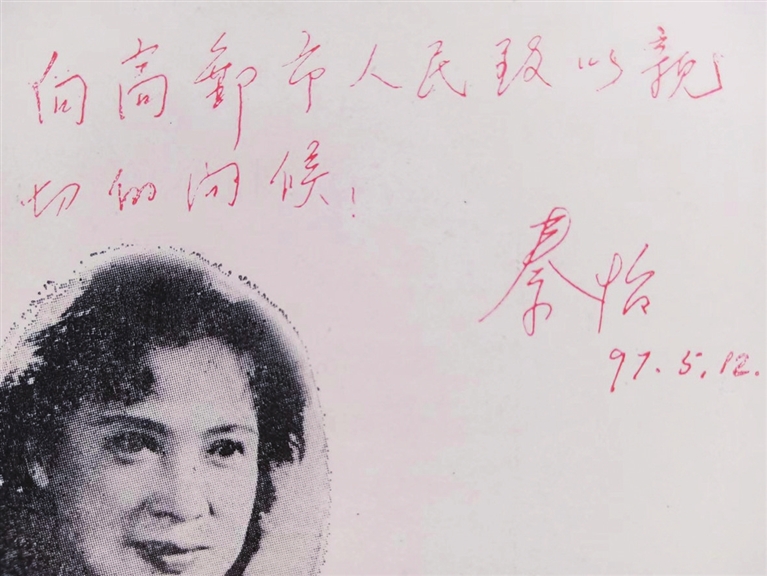 向高邮市人民致以親
切的问候！
秦怡
97.5.12.